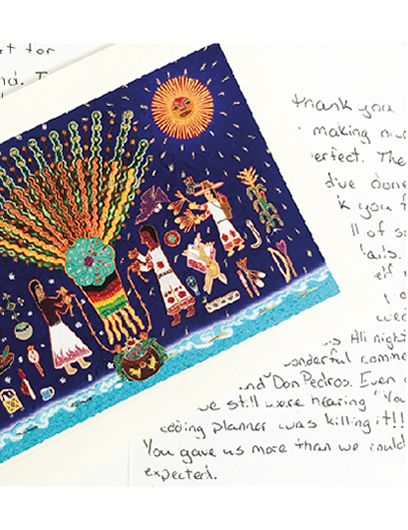 rt for
nd. T
thank you
making our
erfect. The
done
k you f
ll of s
tails.
elf
Ali night
onderful comme
and Don Pedros. Even
we still were hearing "You
edding planner was killing it!!
You gave us more than we could
expected.